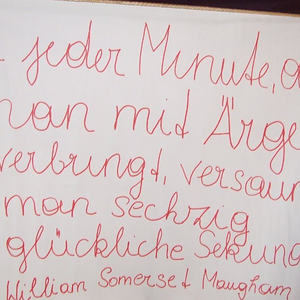 jeder Minute, d
man mit Ärge
verbringt, versäum
man sechzig
glückliche Sekund
William Somerset Maugham